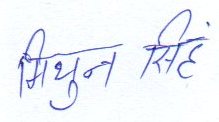 मिथुन सिंह